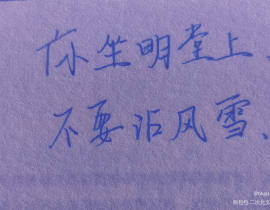 你坐明堂上、
不要沾风雪、